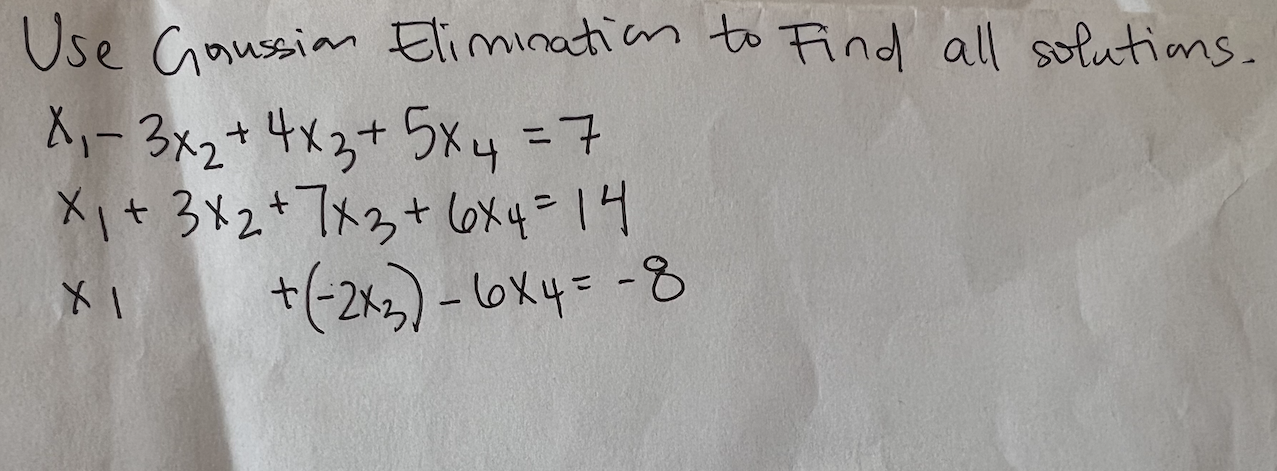 Use Gaussian Elimination to Find all solutions.
x₁ - 3x₂ + 4x₃ + 5x₄ = 7
x₁ + 3x₂ + 7x₃ + 6x₄ = 14
x₁ + (-2x₃) - 6x₄ = -8